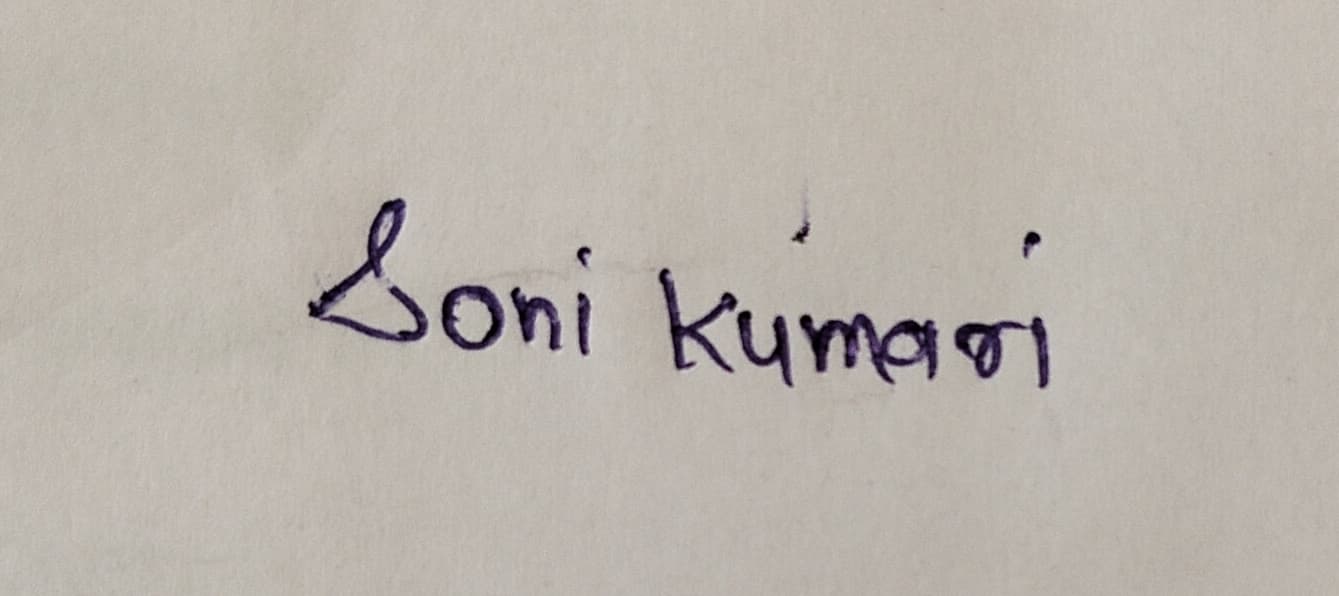 Soni Kumari